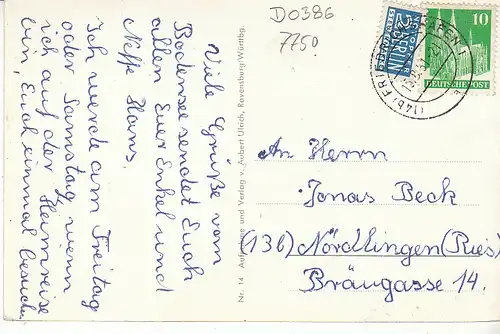 D0386
7750
Viele Grüße vom
Bodensee sendet Euch
allen Euer Enkel und
Neffe Hans.
Ich werde am Freitag
oder Samstag wenn
ich auf der Heimreise
bin, Euch einmal besuchen.
Nr. 14 Aufnahme und Verlag v. Aubert Ulrich, Ravensburg/Württbg.
2
BERLIN
NOTOPFER
10
DEUTSCHE POST
(14b) FRIEDRICHSHAFEN
An Herrn
Jonas Beck
(13b) Nördlingen (Ries)
Bräugasse 14.